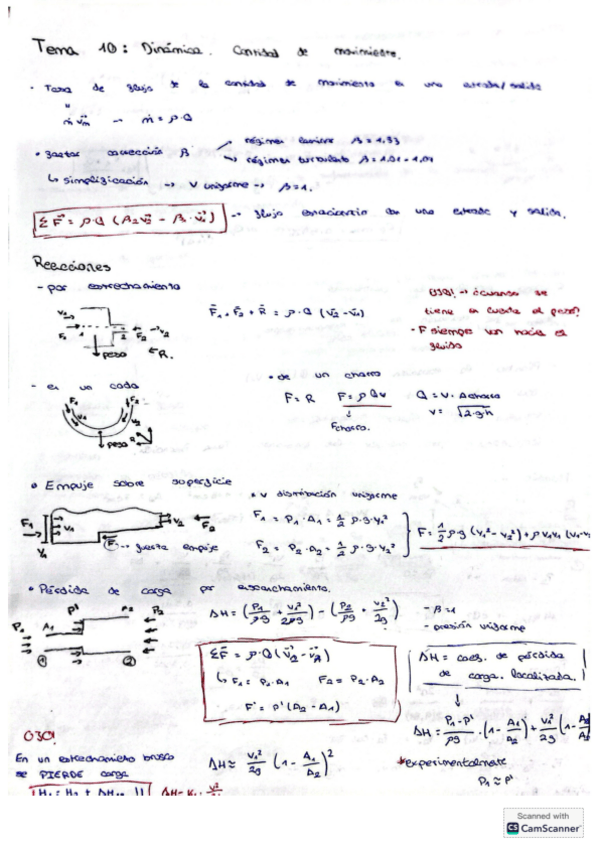 Tema 10: Dinámica. Cantidad de movimiento.
· Tasa de flujo de la cantidad de movimiento en una entrada/salida
"
ṁ v⃗m → ṁ = ρ·Q
· factor corrección β
régimen laminar β = 1,33
régimen turbulento β = 1.01 - 1,04
↳ simplificación → v uniforme → β = 1.
ΣF⃗ = ρ·Q (β2v⃗2 - β1·v⃗1) → flujo estacionario con una entrada y salida.
Reacciones
- por estrechamiento
F⃗1 + F⃗2 + R⃗ = ρ·Q (v⃗2 - v⃗1)
OJO! → ¿cuando se
tiene en cuenta el peso?
- F siempre van hacia el
fluido
V1
F1
1
2
V2
F2
peso
R.
- en un codo
F1
F2
V2
peso
R
• de un chorro
F = R
F = ρQv
Fchorro.
Q = v·Achorro
v = √2·g·h
• Empuje sobre superficie
F1
V1
V2
F2
F → fuerza empuje
Y1
• v distribución uniforme
F1 = P1·A1 = 1/2 ρ·g·y1²
F2 = P2·A2 = 1/2 ρ·g·y2²
F = 1/2 ρg (y1² - y2²) + ρ v1y1 (v1-v
• Pérdida de carga por ensanchamiento.
P1
A1
P'
P2
①
②
ΔH = (P1/ρg + v1²/2g) - (P2/ρg + v2²/2g)
- β = 1
- presión uniforme
ΣF⃗ = ρ·Q (v⃗2 - v⃗1)
↳ F1 = P1·A1 F2 = P2·A2
F' = P'(A2 - A1)
ΔH = coef. de pérdida
de carga localizada.
ΔH = P1-P'/ρg · (1 - A1/A2) + v1²/2g (1 - A1/A2
*experimentalmente
P1 ≈ P'
OJO!
En un estrechamiento brusco
se PIERDE carga
ΔH ≈ v1²/2g (1 - A1/A2)²
Scanned with
CS CamScanner